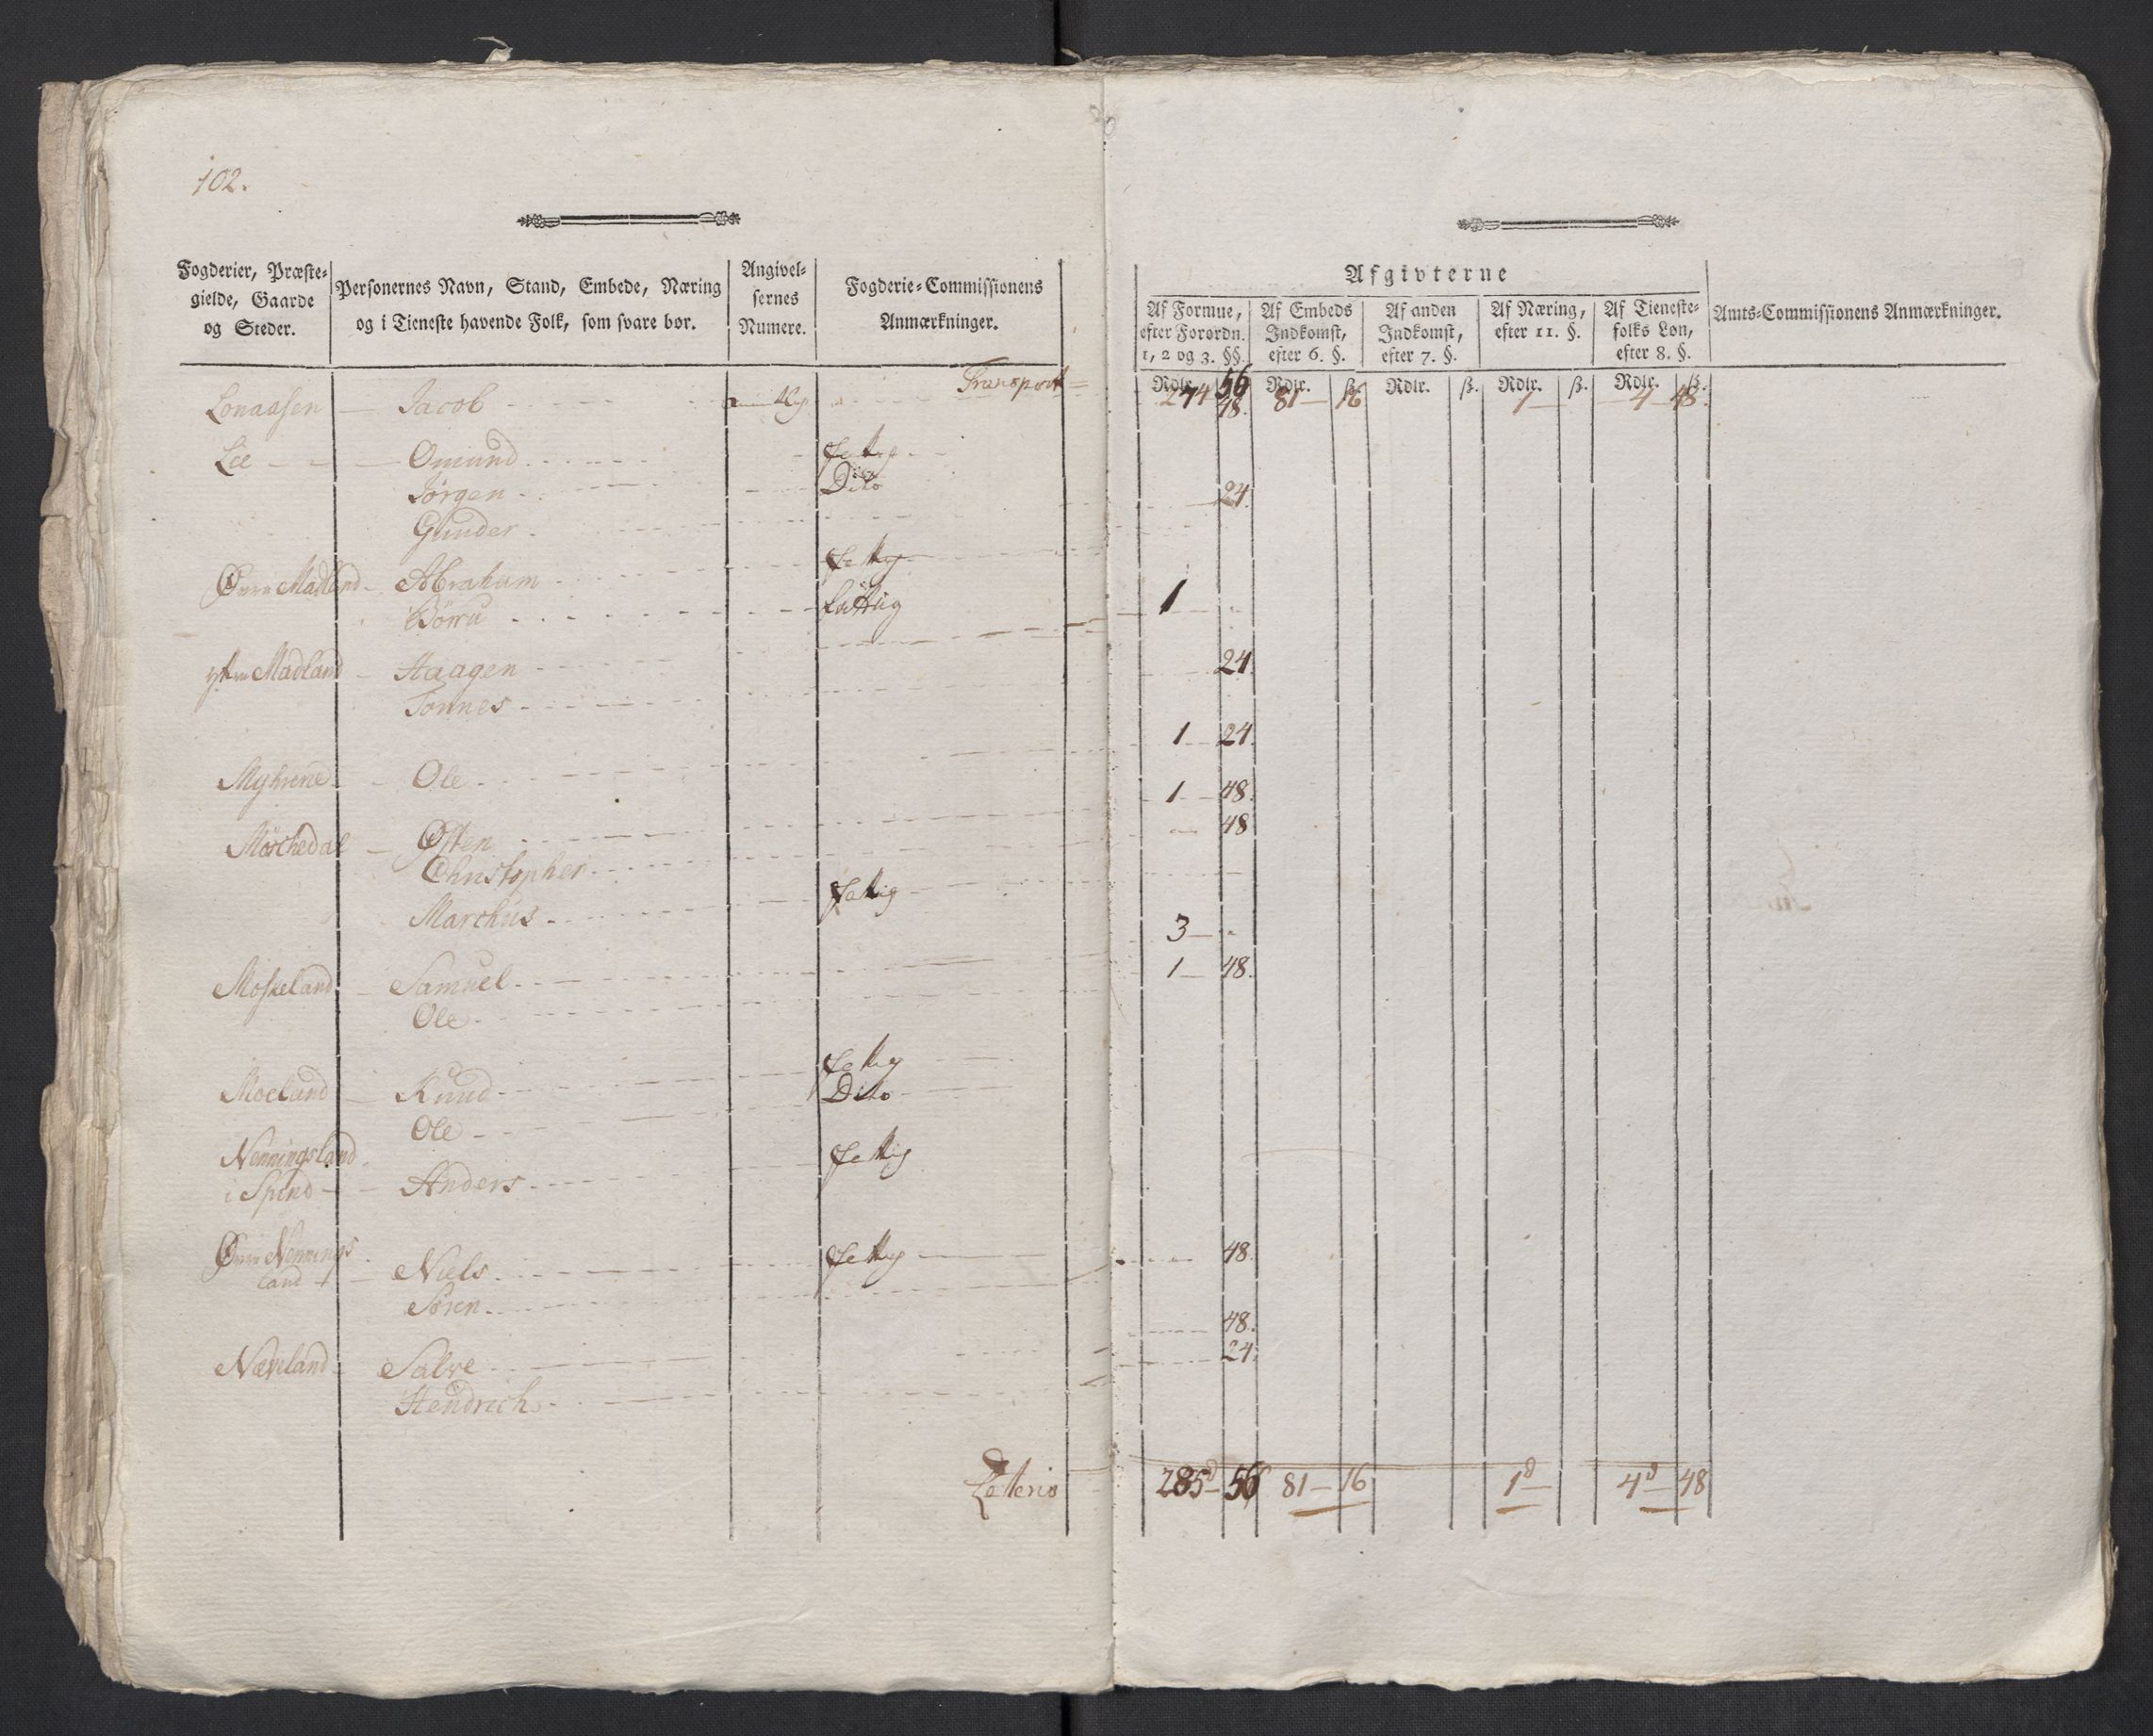 102.
Fogderier, Præste-
gielde, Gaarde
og Steder.
Personernes Navn, Stand, Embede, Næring
og i Tieneste havende Folk, som svare bør.
Angivel-
sernes
Numere.
Fogderie-Commissionens
Anmærkninger.
Afgivterne
Af Formue,
efter Forordn.
1, 2 og 3. §§.
Af Embeds
Indkomst,
efter 6. §.
Af anden
Indkomst,
efter 7. §.
Af Næring,
efter 11. §.
Af Tieneste-
folks Løn,
efter 8. §.
Amts-Commissionens Anmærkninger.
Rdlr. ß. Rdlr. ß. Rdlr. ß. Rdlr. ß. Rdlr. ß.
Transport 274 56 48. 81 16 1 4 48.
Lonaasen Jacob
Lie Omund fattig
Jörgen Dito 24.
Gunder
Øvre Madland Abraham fattig
Börre fattig 1
ytre Madland Haagen 24.
Tönnes
1 24.
Myhrene Ole
1 48.
Möschedal Østen 48
Christopher
Marchus fattig
3
Moskeland Samuel 1 48.
Ole
Moeland Knud fattig
Ole Dito
Nenningsland
i Spind Anders fattig
Øvre Nennings
land Niels fattig 48.
Sören
48.
Næveland Salve 24.
Hendrich
Lateris 285 56 81 16 1 4 48